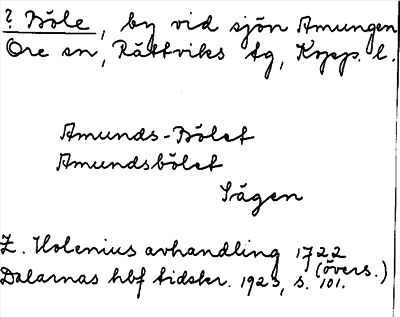 ? Böle, by vid sjön Amungen
Ore sn, Rättviks tg, Kopp. l.
Amunds-Bölet
Amundsbölet
Sägen
Z. Holenius avhandling 1722
(övers.)
Dalarnas hbf tidskr. 1923, s. 101.